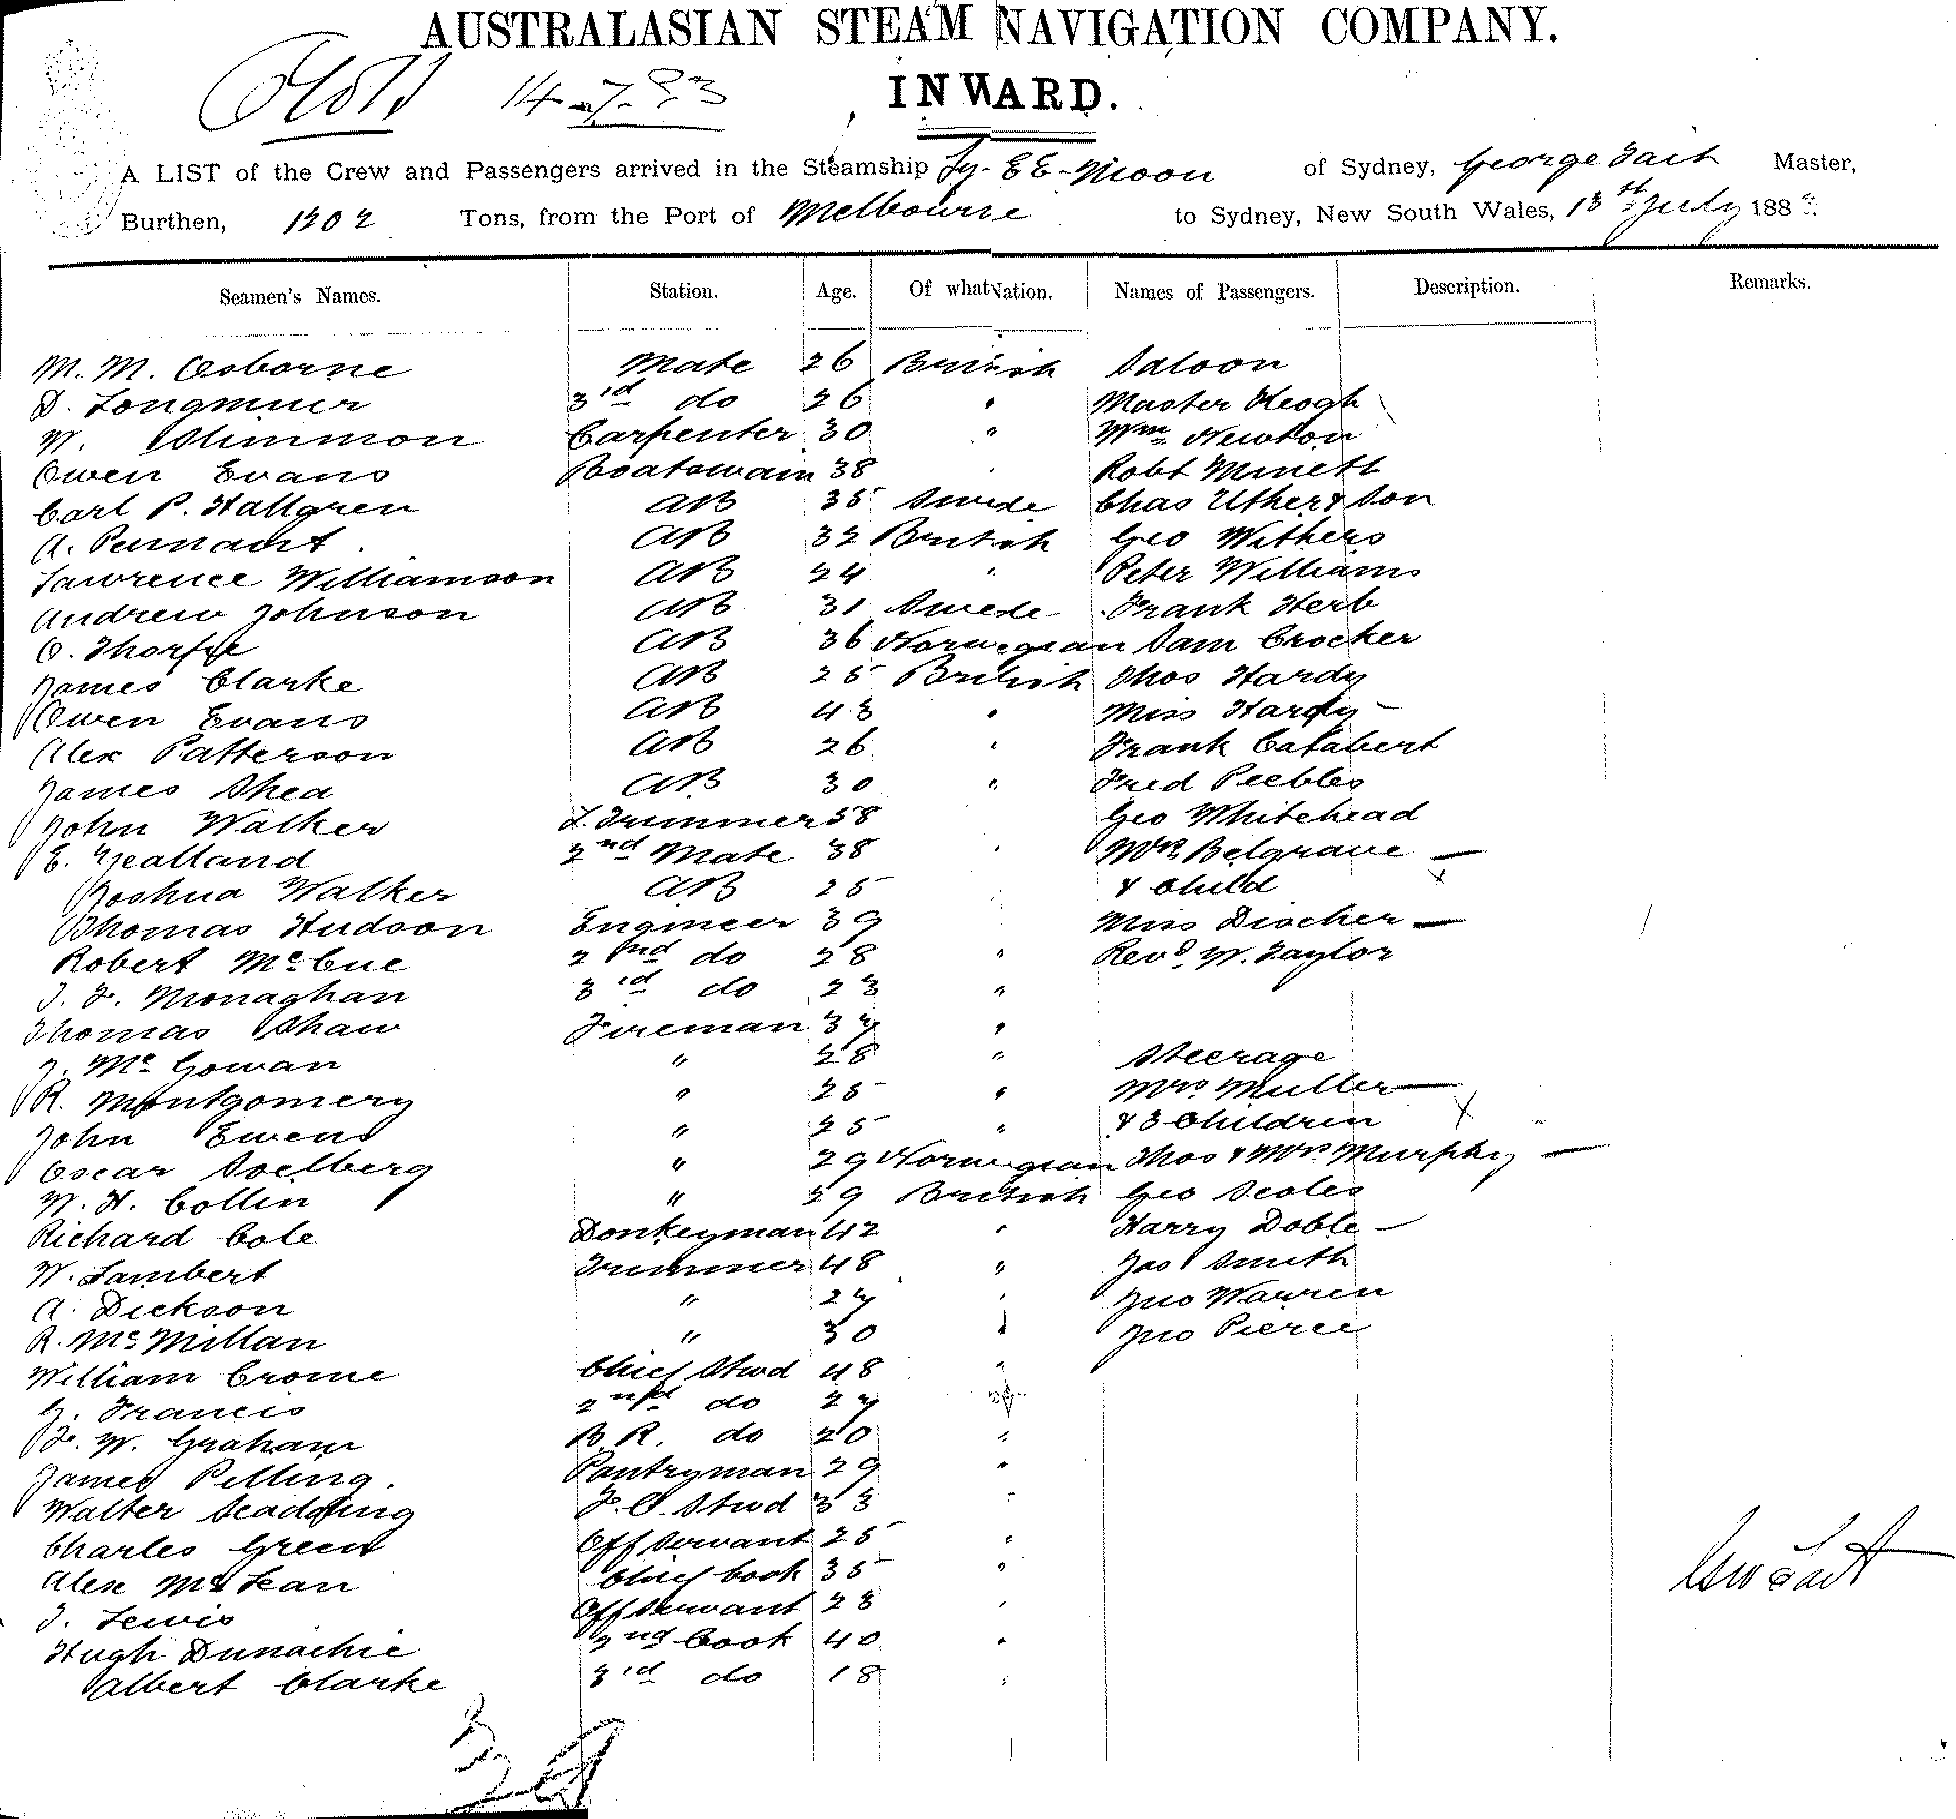 AUSTRALASIAN STEAM NAVIGATION COMPANY.
14-7-83 INWARD.
A LIST of the Crew and Passengers arrived in the Steamship Ly-EE-Moon of Sydney, George Tait Master,
Burthen, 1202 Tons, from the Port of Melbourne to Sydney, New South Wales, 13th July 188
Seamen's Names. Station. Age. Of what Nation. Names of Passengers. Description. Remarks.
M. M. Osborne Mate 26 British Saloon
D. Longmuir 3rd do 26 " Master Keogh
W. Slimmon Carpenter 30 " Wm Newton
Owen Evans Boatswain 38 " Robt Minett
Carl P. Hallgren AB 35 Swede Chas Uther & Son
A. AB 32 British Geo Withers
Lawrence Williamson AB 24 " Peter Williams
Andrew Johnson AB 31 Swede Frank Herb
O. AB 36 Norwegian Sam Crocker
James Clarke AB 25 British Thos Hardy
Owen Evans AB 43 " Miss Hardy
Alex Patterson AB 26 " Frank
James Shea AB 30 " Fred Peebles
John Walker L. Trimmer 58 Geo Whitehead
E. Yealland 2nd Mate 38 " Mrs Belgrave
Joshua Walker AB 25 & Child
Thomas Hudson Engineer 39 Miss Discher
Robert McCue 2nd do 28 " Revd. W. Taylor
J. F. Monaghan 3rd do 23 "
Thomas Shaw Fireman 37 "
J. McGowan " 28 " Steerage
R. Montgomery " 25 " Mrs Muller
John Ewens " 25 " & 3 Children
Oscar Soelberg " 29 Norwegian Thos & Mrs Murphy
W. H. Collin " 29 British Geo Scoles
Richard Cole Donkeyman 42 " Harry Doble
W. Lambert Trimmer 48 " Jas Smith
A. Dickson " 27 " Jno Warren
R. McMillan " 30 " Jno Pierce
William Crome Chief Stwd 48 "
G. Francis 2nd do 27 "
F. W. Graham B. R. do 20 "
James Pilling. Pantryman 29 "
Walter Scadding F. C. Stwd 33 "
Charles Green Off Servant 25 "
Alex McLean Chief Cook 35 "
J. Lewis Off Servant 23 "
Hugh Dunachie 2nd Cook 40 "
Albert Clarke 3rd do 18 "
Geo Tait